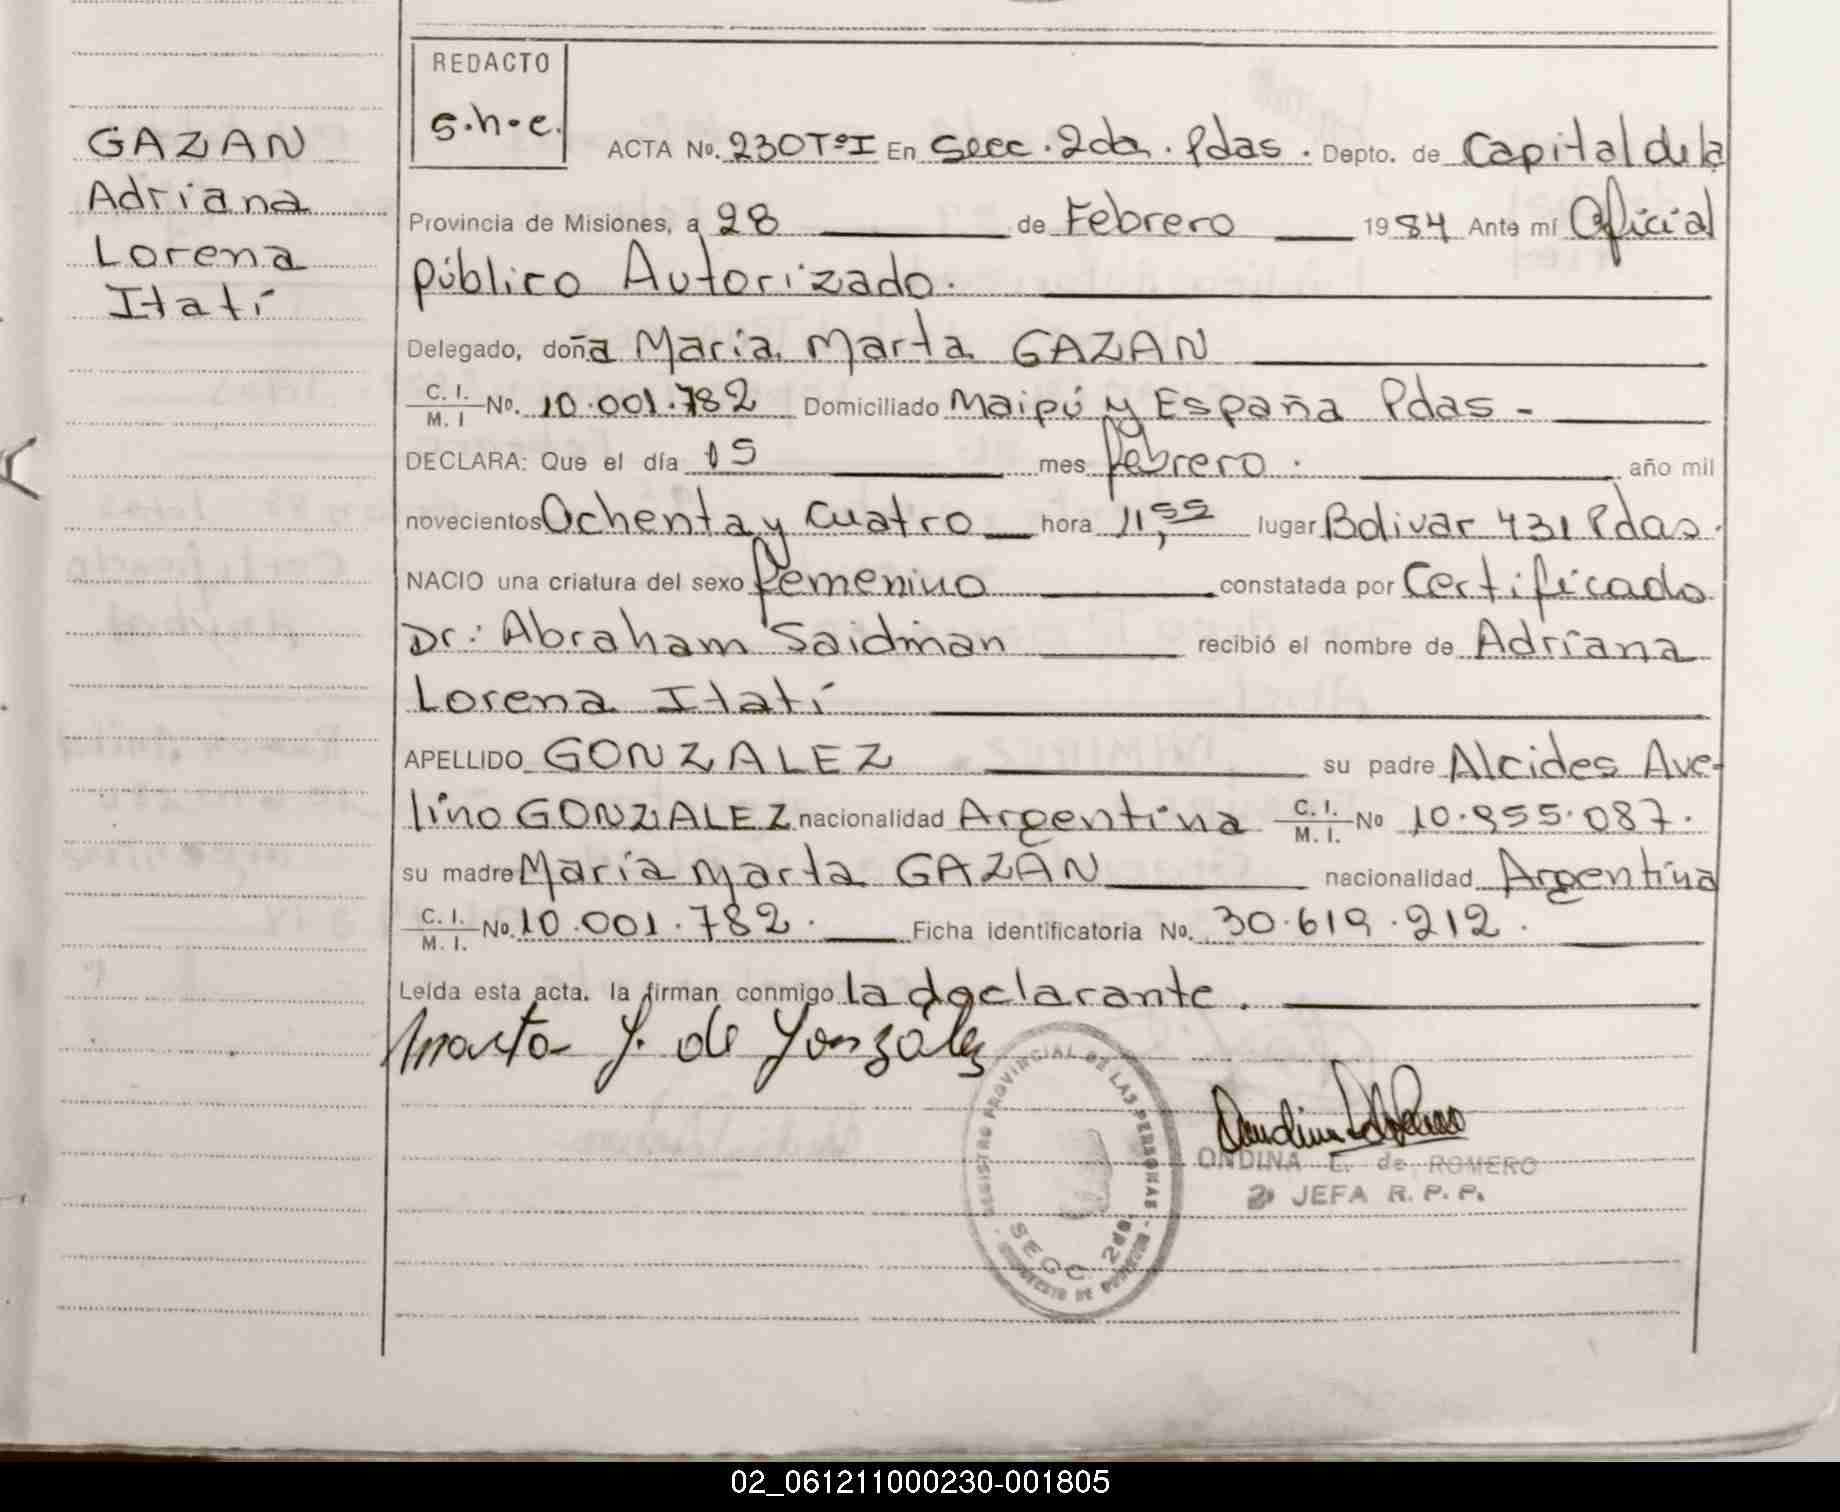 REDACTO
s.h.e.
GAZAN
Adriana
Lorena
Itatí
ACTA Nº. 230TºI En Secc. 2da. Pdas. Depto. de Capital de la
Provincia de Misiones, a 28 de Febrero 1984 Ante mí Oficial
público Autorizado.
Delegado, doña María Marta GAZAN
C. I. / M. I Nº. 10.001.782 Domiciliado Maipú y España Pdas-
DECLARA: Que el día 15 mes febrero. año mil
novecientos Ochenta y cuatro hora 11,55 lugar Bolivar 431 Pdas.
NACIO una criatura del sexo femenino constatada por Certificado
Dr: Abraham Saidman recibió el nombre de Adriana
Lorena Itatí
APELLIDO GONZALEZ su padre Alcides Ave-
lino GONZALEZ nacionalidad Argentina C. I. / M. I. Nº 10.955.087.
su madre María Marta GAZAN nacionalidad Argentina
C. I. / M. I. Nº. 10.001.782. Ficha identificatoria Nº. 30.619.212.
Leída esta acta. la firman conmigo la declarante.
Marta G. de González
REGISTRO PROVINCIAL DE LAS PERSONAS
SECC. 2da.
ONDINA L. de ROMERO
JEFA R. P. P.
02_061211000230-001805